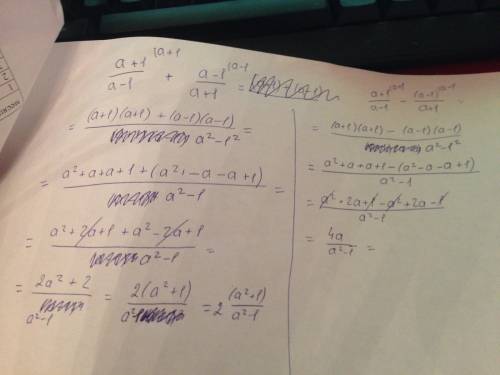 (a+1)/(a-1) |a+1 + (a-1)/(a+1) |a-1 =
= ((a+1)(a+1) + (a-1)(a-1))/(a²-1²) =
= (a²+a+a+1+(a²-a-a+1))/(a²-1) =
= (a²+2a+1+a²-2a+1)/(a²-1) =
= (2a²+2)/(a²-1) = 2(a²+1)/(a²-1) = 2 (a²+1)/(a²-1)
(a+1)/(a-1) |a+1 - (a-1)/(a+1) |a-1
= ((a+1)(a+1) - (a-1)(a-1))/(a²-1²)
= (a²+a+a+1-(a²-a-a+1))/(a²-1)
= (a²+2a+1-a²+2a-1)/(a²-1)
= 4a/(a²-1) =